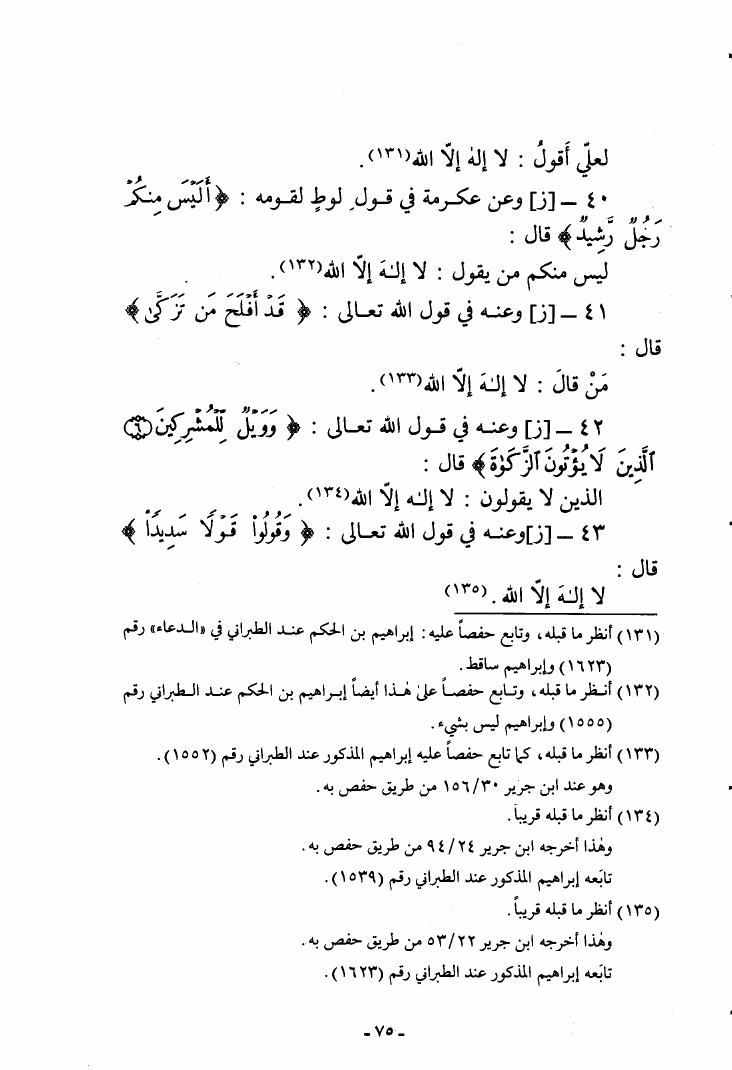 لعلّي أَقولُ : لا إلهٰ إلّا الله(١٣١).
٤٠ ـ [ز] وعن عكرمة في قول لوطٍ لقومه : ﴿ أَلَيْسَ مِنكُمْ
رَجُلٌ رَّشِيدٌ ﴾ قال :
ليس منكم من يقول : لا إلـٰهَ إلّا الله(١٣٢).
٤١ ـ [ز] وعنه في قول الله تعالى : ﴿ قَدْ أَفْلَحَ مَن تَزَكَّىٰ ﴾
قال :
مَنْ قالَ : لا إلـٰهَ إلّا الله(١٣٣).
٤٢ ـ [ز] وعنه في قول الله تعالى : ﴿ وَوَيْلٌ لِّلْمُشْرِكِينَ ٦
ٱلَّذِينَ لَا يُؤْتُونَ ٱلزَّكَوٰةَ ﴾ قال :
الذين لا يقولون : لا إلـٰه إلّا الله(١٣٤).
٤٣ ـ [ز]وعنه في قول الله تعالى : ﴿ وَقُولُوا۟ قَوْلًا سَدِيدًا ﴾
قال :
لا إلـٰهَ إلّا الله .(١٣٥)
(١٣١) أنظر ما قبله، وتابع حفصاً عليه: إبراهيم بن الحكم عند الطبراني في «الدعاء» رقم
(١٦٢٣) وإبراهيم ساقط.
(١٣٢) أنظر ما قبله، وتابع حفصاً علىٰ هٰذا أيضاً إبراهيم بن الحكم عند الطبراني رقم
(١٥٥٥) وإبراهيم ليس بشيء.
(١٣٣) أنظر ما قبله، كما تابع حفصاً عليه إبراهيم المذكور عند الطبراني رقم (١٥٥٢).
وهو عند ابن جرير ١٥٦/٣٠ من طريق حفص به.
(١٣٤) أنظر ما قبله قريباً.
وهٰذا أخرجه ابن جرير ٩٤/٢٤ من طريق حفص به.
تابَعه إبراهيم المذكور عند الطبراني رقم (١٥٣٩).
(١٣٥) أنظر ما قبله قريباً.
وهٰذا أخرجه ابن جرير ٥٣/٢٢ من طريق حفص به.
تابَعه إبراهيم المذكور عند الطبراني رقم (١٦٢٣).
ـ ٧٥ ـ